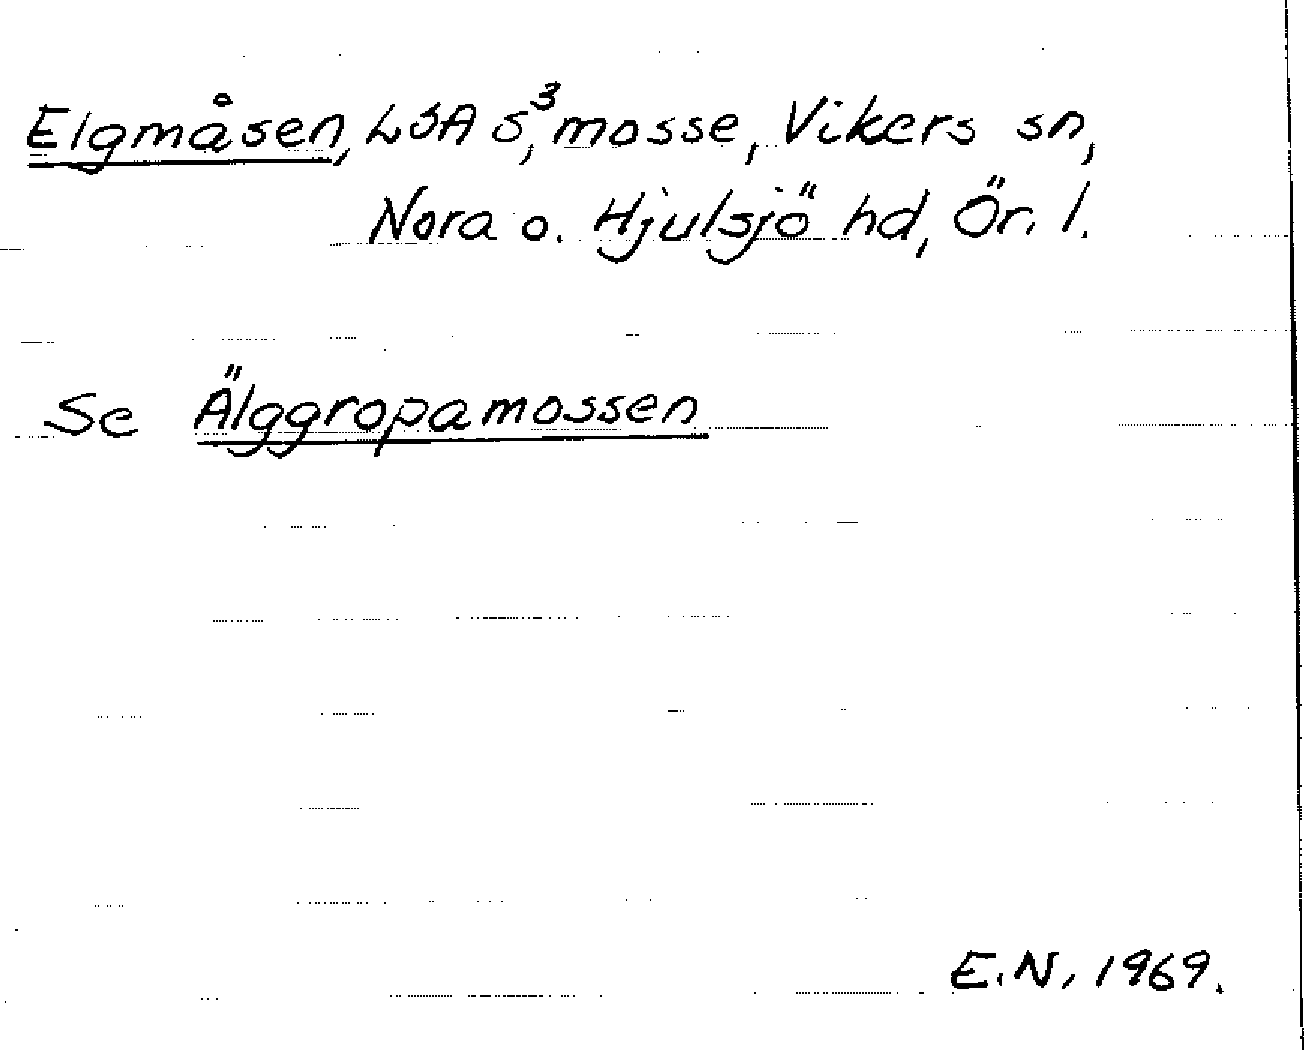 Elgmåsen, LSA S³, mosse, Vikers sn,
Nora o. Hjulsjö hd, Ör. l.
Se Älggropamossen
E.N, 1969.